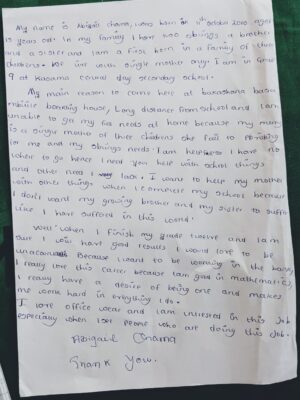 My name is Abigail chama, was born in 11th october 2010 aged
15 years old. In my family I have two sbirings, a brother
and a sister and I am a first born in a family of three
childrens. We live with single mother and I am in form
9 at Kasama day secondary school.
My main reason to come here at
boarding house, Long distance from school and I am
unable to get my needs at home because my mum
is a single mother of three childrens she fail to providing
for me and my sbirings needs. I am helpless I have no
where to go hence I need you help with school things
and other need I lack. I want to help my mother
with other things when I complete my school because
I don't want my growing brother and my sister to suffer
Like I have suffered in this world.
Well when I finish my grade twelve and I am
sure I will have good results I would love to be
Because I want to be working in the bank,
I really love this career because I am good in mathematics,
I really have a desire of being one and makes
me work hard in everything I do.
I love office wear and I am in this Job
especially when I see people who are doing this Job.
Abigail Chama
Thank You.